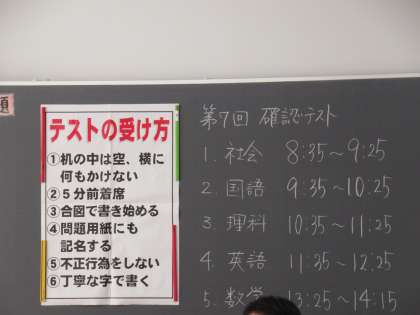 テストの受け方
①机の中は空、横に
何もかけない
②５分前着席
③合図で書き始める
④問題用紙にも
記名する
⑤不正行為をしない
⑥丁寧な字で書く
第7回 確認テスト
1. 社会 8:35～9:25
2. 国語 9:35～10:25
3. 理科 10:35～11:25
4. 英語 11:35～12:25
5. 数学 13:25～14:15